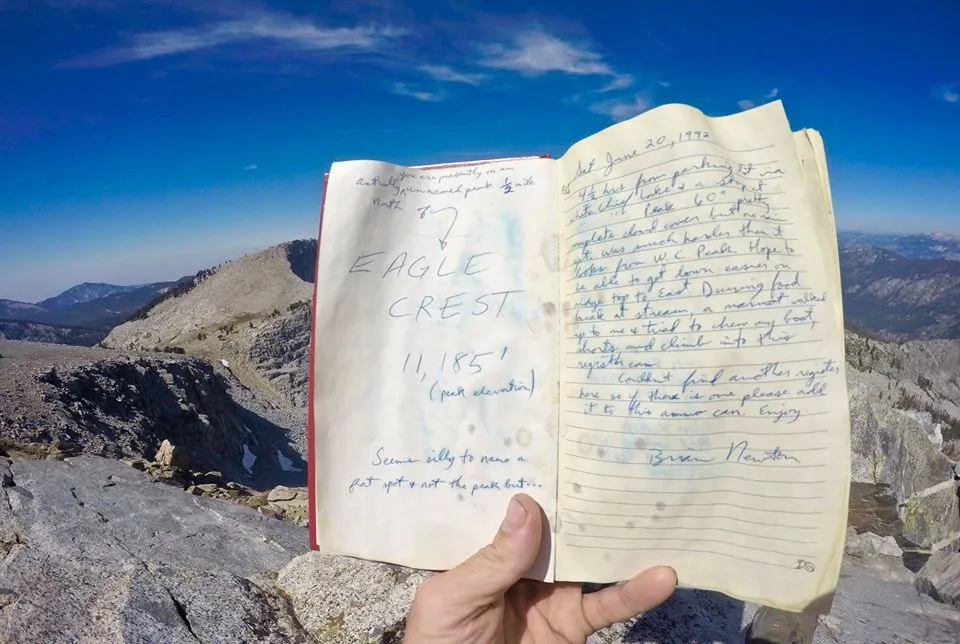 you are presently on an
actually unnamed peak ½ mile
North of
EAGLE
CREST
11,185'
(peak elevation)
Seems silly to name a
flat spot & not the peak but...
Sat June 20, 1992
4½ hrs from parking lot via
White Chief Lake &
Peak 60° pretty
complete cloud cover but no rain
yet. Was much harder than it
looks from W.C. Peak. Hope to
be able to get down easier on
ridge top to East. During food
break at stream, a marmot walked
up to me & tried to chew my boot,
shorts, and climb into this
register can.
Couldn't find another register
here so if there is one please add
it to this ammo can. Enjoy
Brian Newton